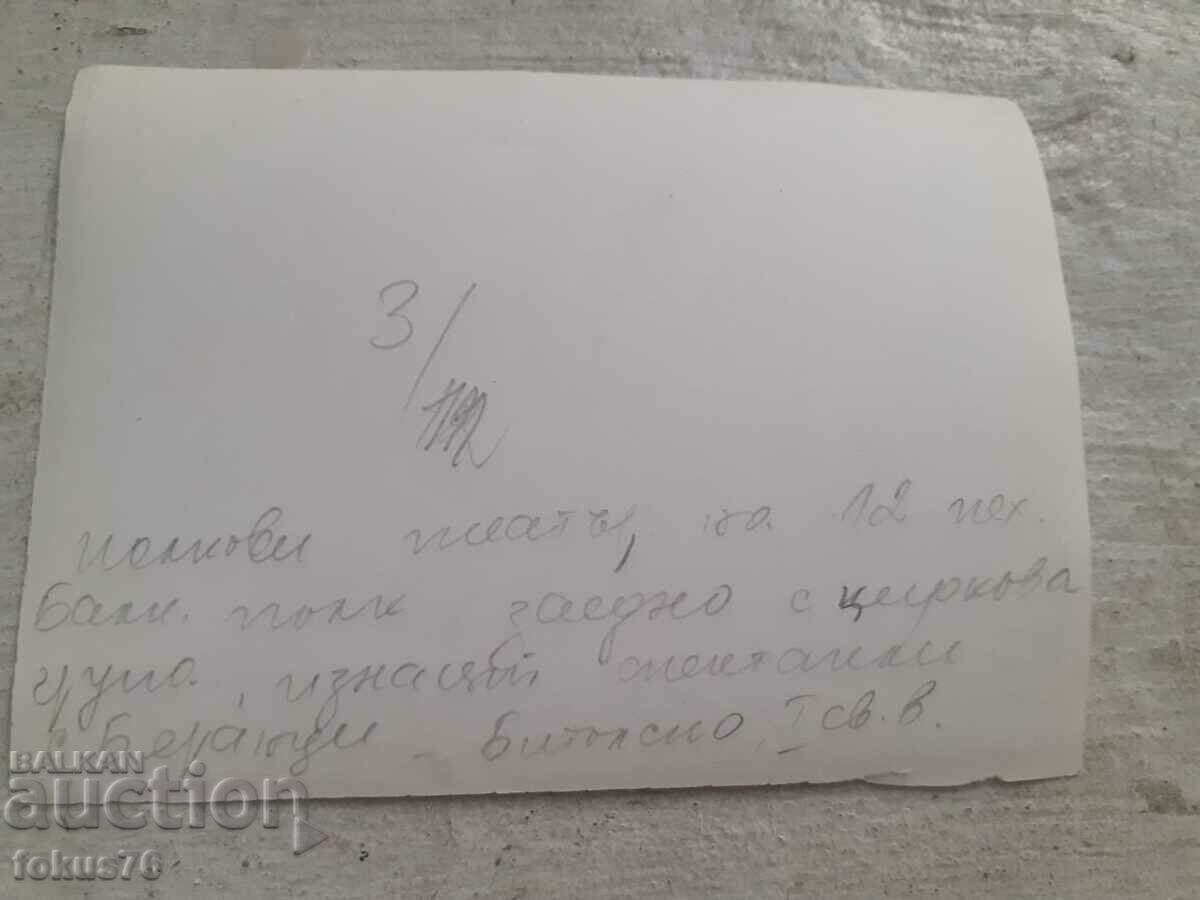 3/
полкови театър на 12 пех.
балк. полк заедно с циркова
група, изнасят спектакли
с. Беранци - Битолско, I св. в.
BALKAN
auction
fokus76